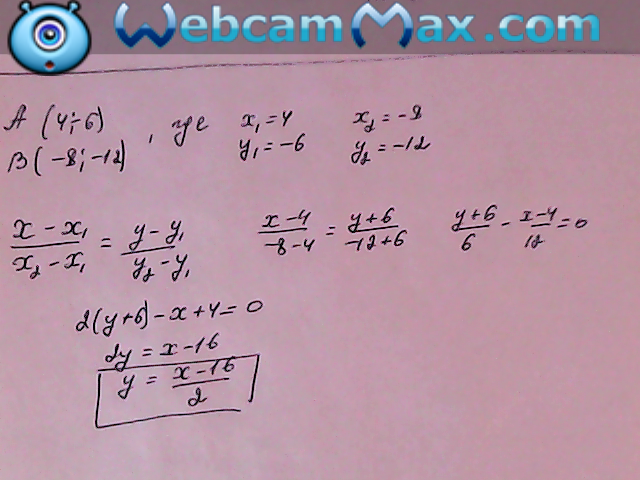 WebcamMax.com
A (4;-6)
B(-8;-12) , где x₁=4 x₂=-8
y₁=-6 y₂=-12
(x-x₁)/(x₂-x₁) = (y-y₁)/(y₂-y₁) (x-4)/(-8-4) = (y+6)/(-12+6) (y+6)/6 - (x-4)/12=0
2(y+6)-x+4=0
2y=x-16
y = (x-16)/2